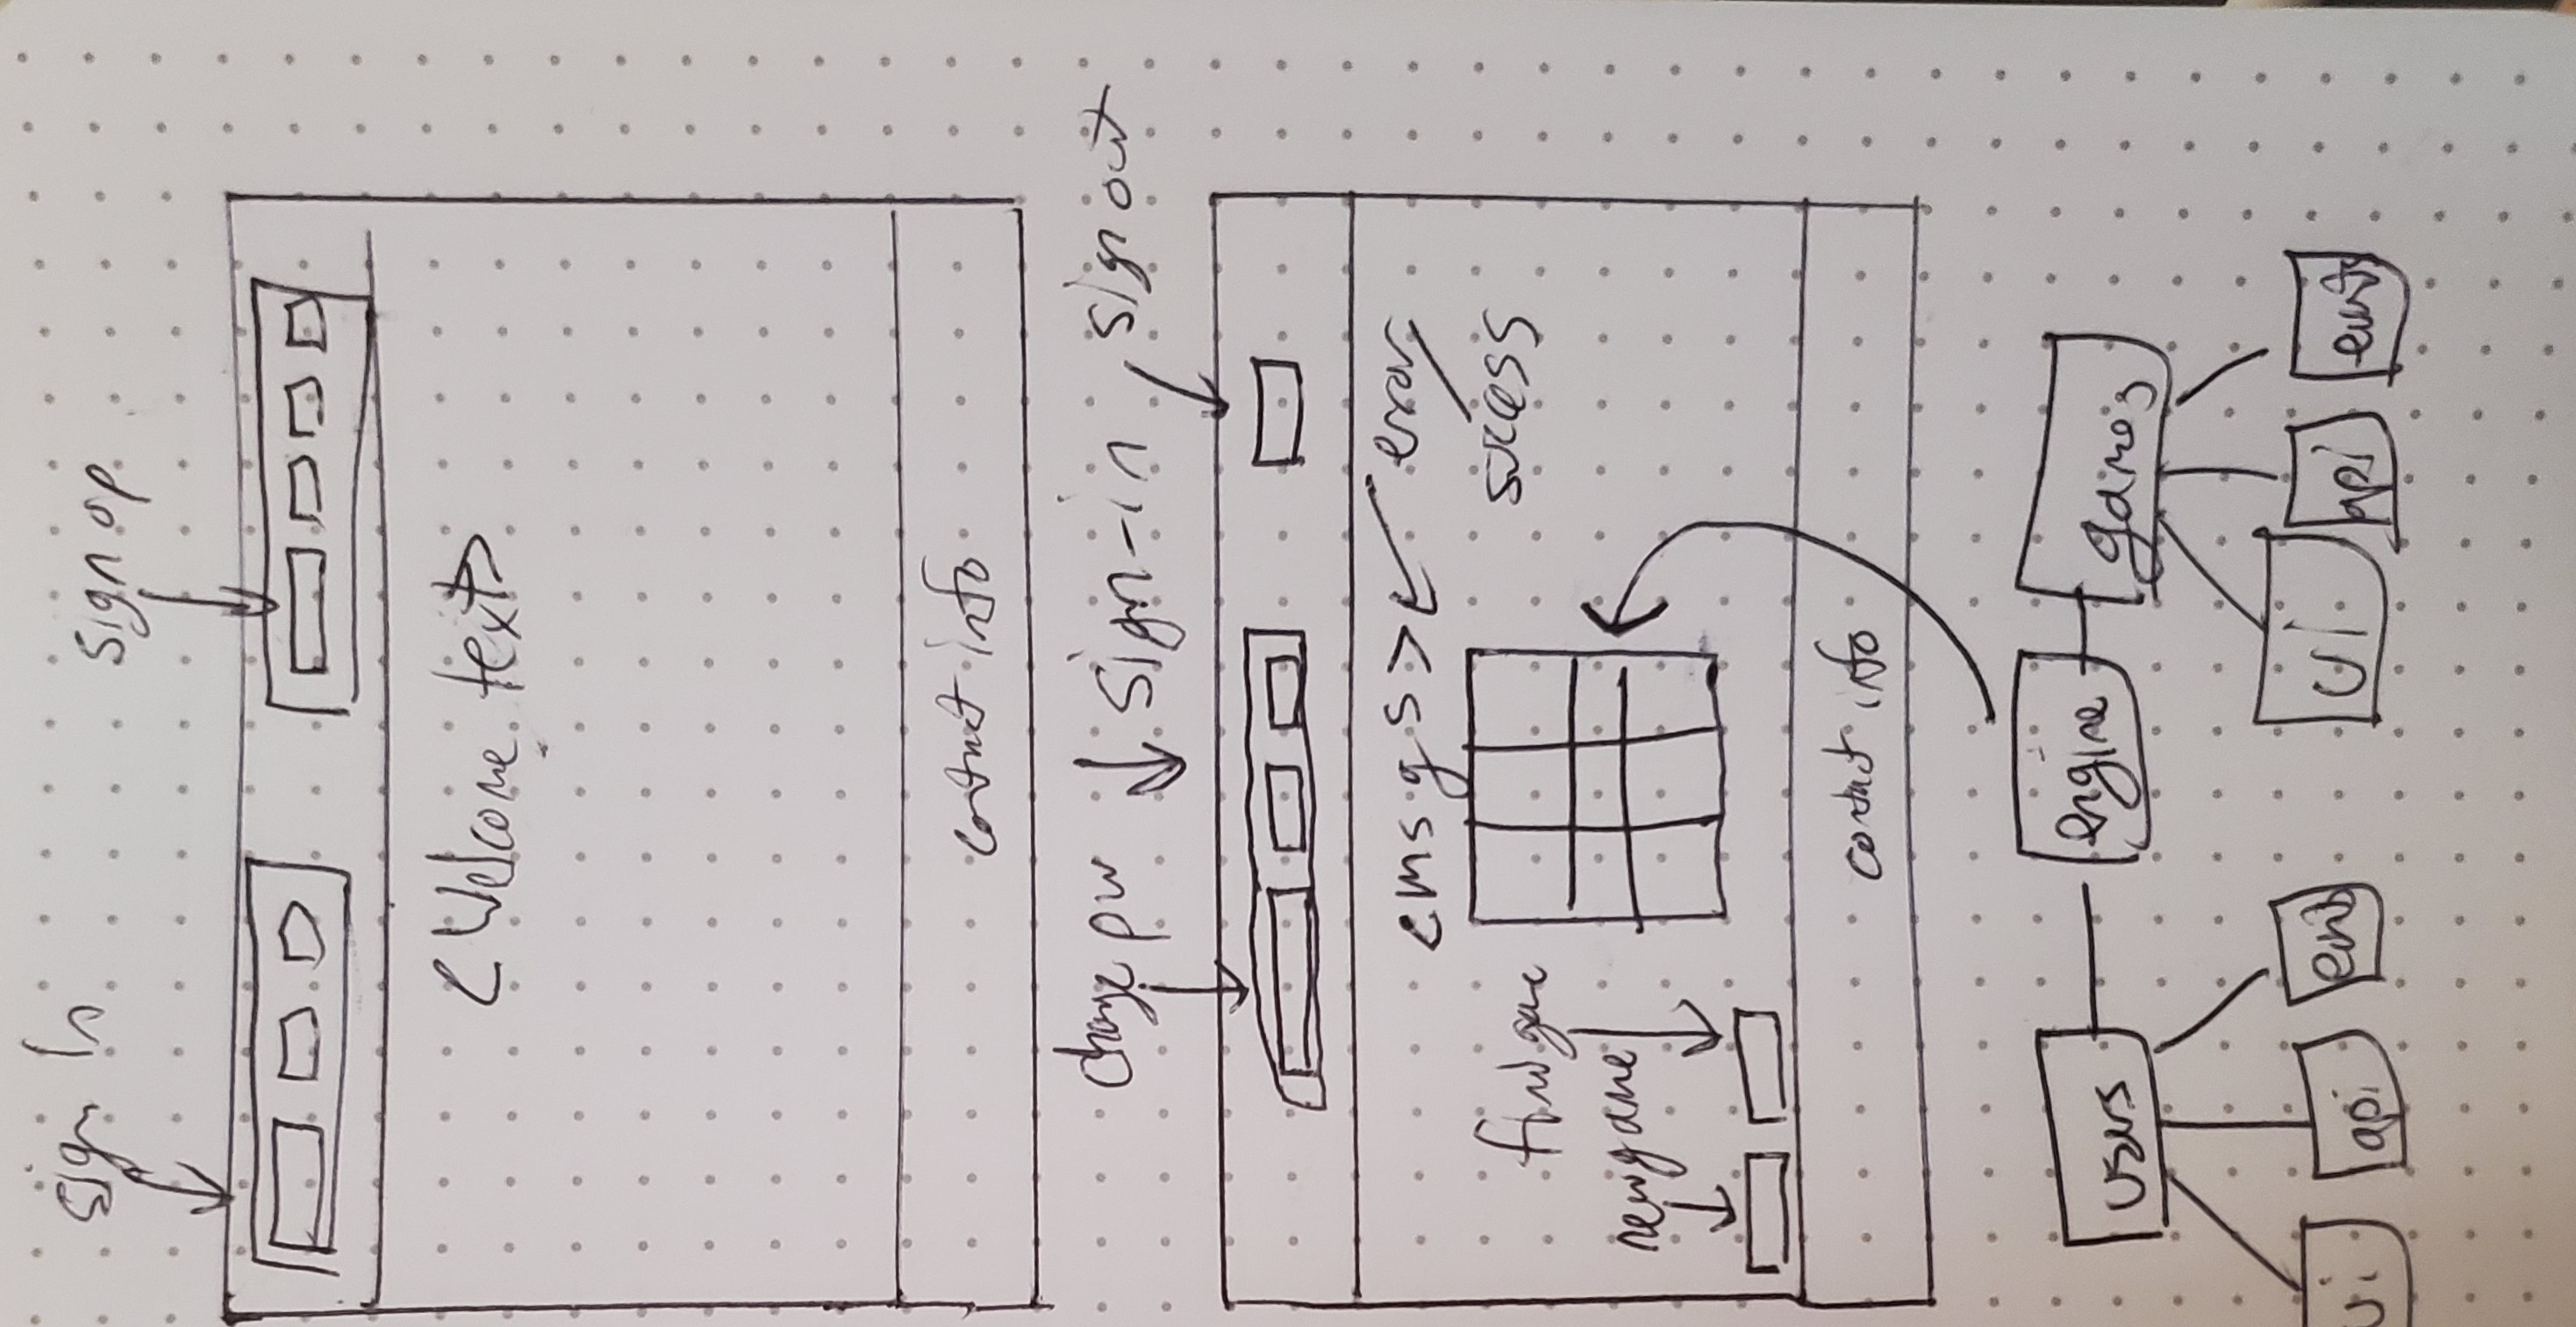 sign In
sign up
<Welcome text>
contact info
change pw
sign-in
sign out
<msgs>
error/
success
find game
new game
contact info
users
engine
games
ui
api
events
ui
api
events